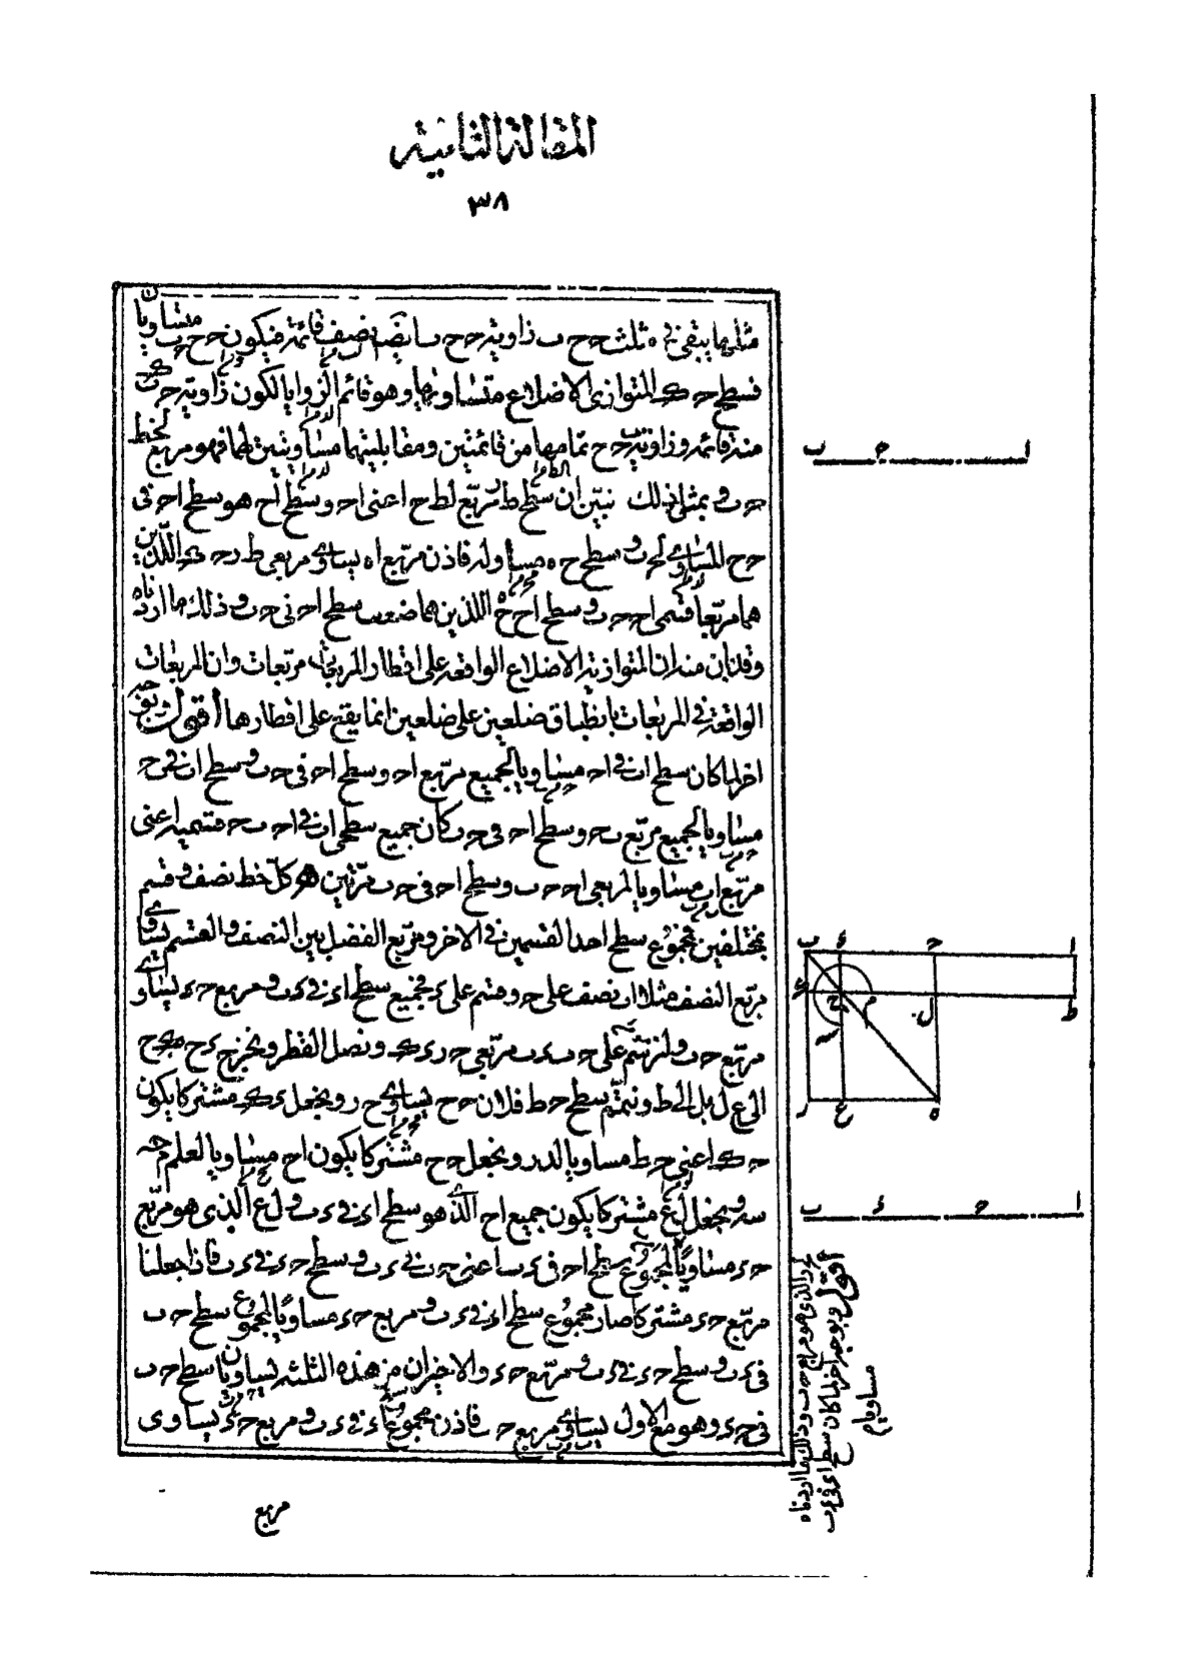 المقالة الثانية
٣٨
مثلها يبقى في مثلث ح ح ب زاوية ح ح ب ايضا نصف قائمة فيكون ح ح ح ب متساويان
فسطح ح ك المتوازى الاضلاع متساويها وهو قائم الزوايا لكون زاوية ح ب ك
منه قائمة وزاوية ب ح ح تمامها من قائمتين ومقابليتهما مساويتين لهما فهو مربع لخط
ح ب وبمثل ذلك نبين ان سطح ط ر مربع لط ح اعنى ا ح وسطح ا ح هو سطح ا ح فى
ح ح المساوى لح ب وسطح ح ه مساو له فاذن مربع ا ه يساوى مربعى ط ر ح ك اللذين
هما مربعا قسمى ا ح ح ب وسطح ا ح ح ه اللذين هما ضعف سطح ا ح فى ح ب وذلك ما اردناه
وقد بان منه ان المتوازية الاضلاع الواقعة على اقطار المربعات مربعات وان المربعات
الواقعة فى المربعات بانطباق ضلعين على ضلعين انما يقع على اقطارها أقول وبوجه
اخر لما كان سطح ا ب فى ا ح مساويا لجميع مربع ا ح وسطح ا ح فى ح ب وسطح ا ب فى ب ح
مساويا لجميع مربع ب ح وسطح ا ح فى ح ب كان جميع سطحى ا ب فى ا ح ب ح قسميه اعنى
مربع ا ب مساويا لمربعى ا ح ح ب وسطح ا ح فى ح ب مرتين ه كل خط نصف وقسم
بمختلفين فمجموع سطح احد القسمين فى الاخر ومربع الفضل بين النصف والقسم يساوى
مربع النصف مثلا ا ب نصف على ح وقسم على ء فجميع سطح ا ء فى ء ب ومربع ح ء يساوى
مربع ح ب ولنرسم على ح ب ء ب مربعى ح ر ء ك ونصل القطر ونخرج ء ح ح ك ح
الى ع ل بل الى ط ونتمم سطح ح ط فلان ح ح يساوى ح ر ونجعل ء ك مشتركا يكون
ح ك اعنى ح ط مساويا لء ر ونجعل ح ح مشتركا يكون ا ح مساويا لعلم م ح
س ونجعل ل ع مشتركا يكون جميع ا ح الذى هو سطح ا ء فى ء ب و ل ع الذى هو مربع
ح ء مساويا لمجموع سطح ا ح فى ء ب اعنى ح ب فى ء ب وسطح ح ء فى ء ب فاذا جعلنا
مربع ح ء مشتركا صار مجموع سطح ا ء فى ء ب ومربع ح ء مساويا لمجموع سطح ح ب
فى ء ب وسطح ح ء فى ء ب ومربع ح ء والاخيران من هذه الثلثة يساويان سطح ح ب
فى ح ء وهو مع الاول يساوى مربع ح ب فاذن مجموع ا ء فى ء ب ومربع ح ء يساوى
مربع
ا ح ب
ا ح ء ب
ط ل م ح ك
س
ه ع ر
ا ح ء ب
ح ر الذى هو مربع ح ب وذلك ما اردناه
أقول وبوجه اخر لما كان سطح ا ء فى ء ب
مساويا